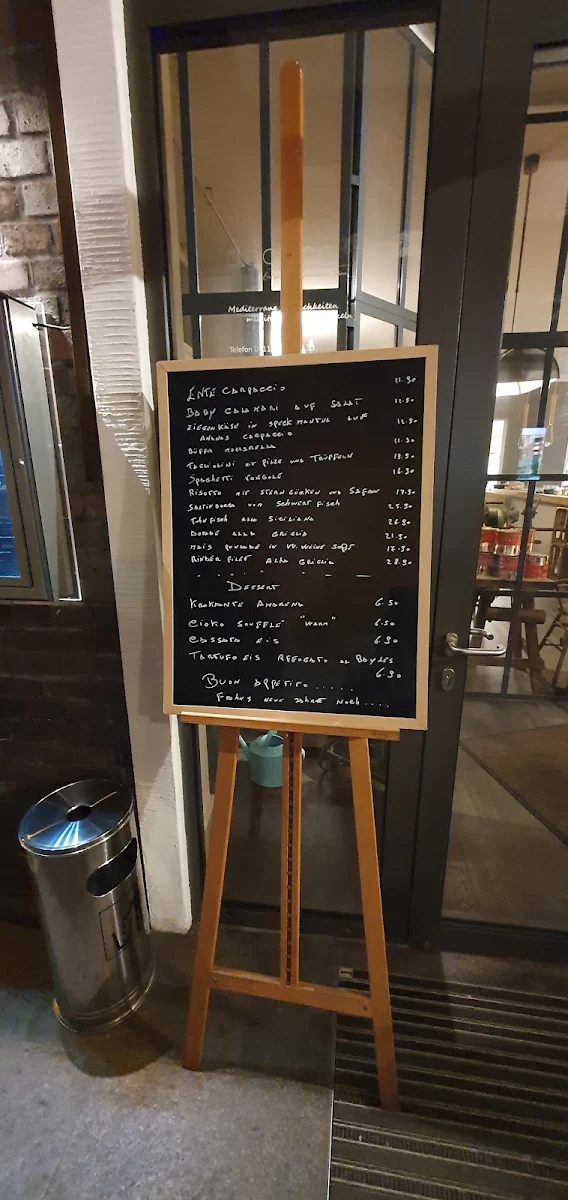 Mediterrane
Telefon
ENTE CARPACCIO 11.90
BABY CALAMARI AUF SALAT 12.90
ZIEGENKÄSE IN SPECK MANTEL AUF 12.90
ANANAS CARPACCIO
BÜFFA MOZZARELLA 11.90
TAGLIOLINI MIT PILZE UND TRÜFFELN
SPAGHETTI VONGOLE 16.90
RISOTTO MIT UND SAFRAN 17.90
VON SCHWERT FISCH 25.90
ALLA SICILIANA 26.90
DORADE ALLA GRIGLIA 21.90
MAIS POULARDE IN
RINDER FILET ALLA GRIGLIA 28.90
DESSERT
KROKANTE AMARENA 6.50
CIOKO SOUFFLÉ "WARM" 6.50
CASSATA EIS 6.90
TARTUFO EIS AFFOGATO AL BAYLES
6.90
BUON APPETITO ......
FROHES NEUE JAHRE NOCH ....